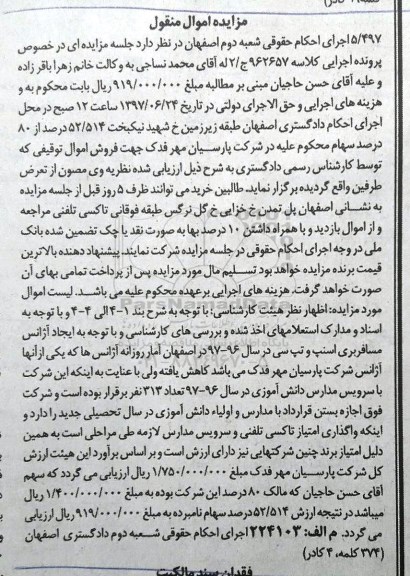 کلمه، ۱ کادر)
مزایده اموال منقول
۵/۴۹۷ اجرای احکام حقوقی شعبه دوم اصفهان در نظر دارد جلسه مزایده ای در خصوص
پرونده اجرایی کلاسه ۹۶۲۶۵۷ ج/۲ له آقای محمد نساجی به وکالت خانم زهرا باقر زاده
و علیه آقای حسن حاجیان مبنی بر مطالبه مبلغ ۹۱۹/۰۰۰/۰۰۰ ریال بابت محکوم به و
هزینه های اجرایی و حق الاجرای دولتی در تاریخ ۱۳۹۷/۰۶/۲۴ ساعت ۱۲ صبح در محل
اجرای احکام دادگستری اصفهان طبقه زیرزمین خ شهید نیکبخت ۵۲/۵۱۴ درصد از ۸۰
درصد سهام محکوم علیه در شرکت پارسیان مهر فدک جهت فروش اموال توقیفی که
توسط کارشناس رسمی دادگستری به شرح ذیل ارزیابی شده نظریه وی مصون از تعرض
طرفین واقع گردیده برگزار نماید. طالبین خرید می توانند ظرف ۵ روز قبل از جلسه مزایده
به نشانی اصفهان پل تمدن خ خزایی خ گل نرگس طبقه فوقانی تاکسی تلفنی مراجعه
و از اموال بازدید و با همراه داشتن ۱۰ درصد بها به صورت نقد یا چک تضمین شده بانک
ملی در وجه اجرای احکام حقوقی در جلسه مزایده شرکت نمایند. پیشنهاد دهنده بالاترین
قیمت برنده مزایده خواهد بود تسلیم مال مورد مزایده پس از پرداخت تمامی بهای آن
صورت خواهد گرفت. هزینه های اجرایی برعهده محکوم علیه می باشد. لیست اموال
مورد مزایده: اظهار نظر هیئت کارشناسی: با توجه به شرح بند ۱-۴ الی ۴-۴ و با توجه به
اسناد و مدارک استعلامهای اخذ شده و بررسی های کارشناسی و با توجه به ایجاد آژانس
مسافربری اسنپ و تپ سی در سال ۹۶-۹۷ در اصفهان آمار روزانه آژانس ها که یکی از آنها
آژانس شرکت پارسیان مهر فدک می باشد کاهش یافته ولی با عنایت به اینکه این شرکت
با سرویس مدارس دانش آموزی در سال ۹۶-۹۷ تعداد ۳۱۳ نفر برقرار بوده است و شرکت
فوق اجازه بستن قرارداد با مدارس و اولیاء دانش آموزی در سال تحصیلی جدید را دارد و
اینکه واگذاری امتیاز تاکسی تلفنی و سرویس مدارس لازمه طی مراحلی است به همین
دلیل امتیاز برند چنین شرکتهایی نیز دارای ارزش است و بر اساس برآورد این هیئت ارزش
کل شرکت پارسیان مهر فدک مبلغ ۱/۷۵۰/۰۰۰/۰۰۰ ریال ارزیابی می گردد که سهم
آقای حسن حاجیان که مالک ۸۰ درصد این شرکت بوده به مبلغ ۱/۴۰۰/۰۰۰/۰۰۰ ریال
میباشد در نتیجه ارزش ۵۲/۵۱۴ درصد سهام نامبرده به مبلغ ۹۱۹/۰۰۰/۰۰۰ ریال ارزیابی
می گردد. م الف: ۲۲۴۱۰۳ اجرای احکام حقوقی شعبه دوم دادگستری اصفهان
(۳۷۴ کلمه، ۴ کادر)
فقدان سند مالکیت